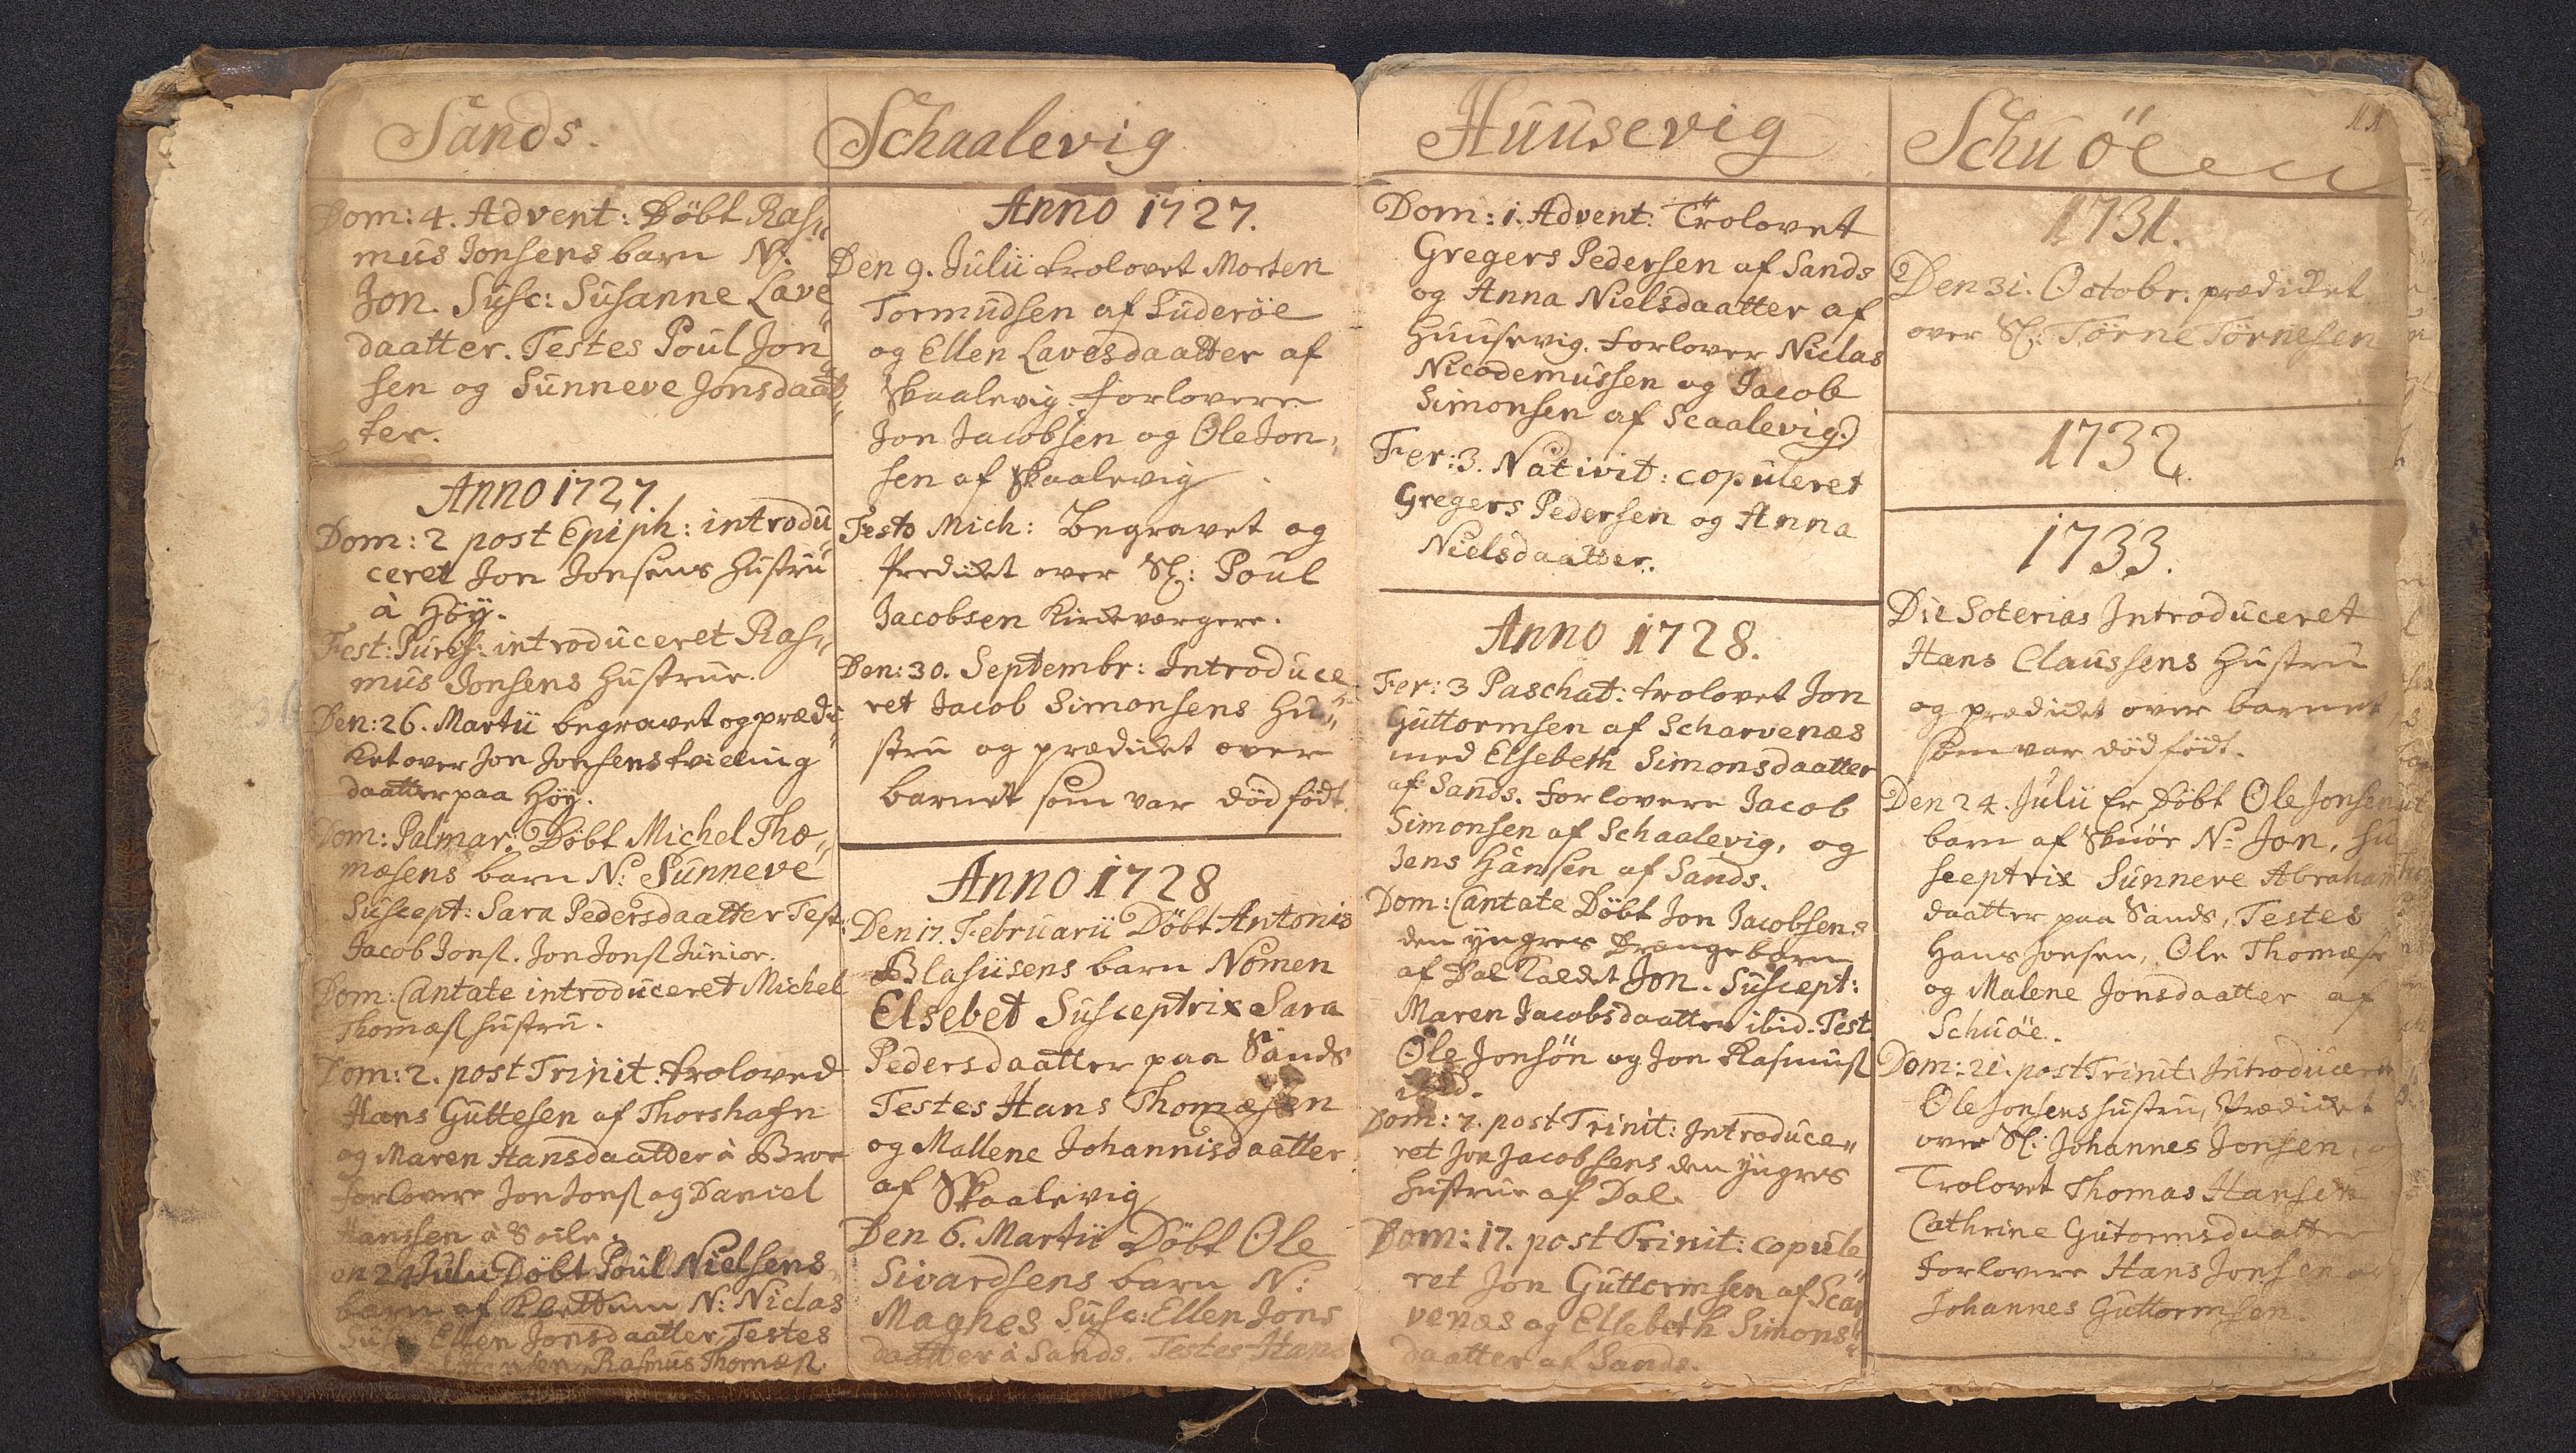 Sands.
Dom: 4. Advent: Döbt Ras„
mus Jonsens barn N:
Jon. Susc: Susanne Lave„
daatter. Testes Poul Jon„
sen og Sunneve Jonsdaat„
ter.
Anno 1727.
Dom: 2 post Epiph: introdu„
ceret Jon Jonsens Hustru
à Höÿ.
Fest: Purif: introduceret Ras„
mus Jonsens Hustrue.
Den: 26. Martii begravet og prædi„
ket over Jon Jonsens tvieling
daatter paa Höÿ.
Dom: Palmar: Döbt Michel Tho„
mæsens barn N: Sunneve
Suscept: Sara Pedersdaatter Test:
Jacob Jons. Jon Jons Junior.
Dom: Cantate introduceret Michel
Thomæs Hustru.
Dom: 2. post Trinit: troloved
Hans Guttesen af Thorshafn
og Maren Hansdaatter à Broe
forlovere Jon Jons og Daniel
Hanssen à
24 Julii Döbt Poul Nielsens
barn af N: Niclas
Susc: Ellen Jonsdaatter Testes
Rasmus Thomæs.
Schaalevig
Anno 1727.
Den 9. Julii trolovet Morten
Tormudsen af Suderöe
og Ellen Lavesdaatter af
Skaalevig. forlovere
Jon Jacobsen og Ole Jon„
sen af Skaalevig
Festo Mich: Begravet og
Prediket over Sl: Poul
Jacobsen Kirkeværgere.
Den: 30. Septembr: Introduce
ret Jacob Simonsens Hu„
stru og prædiket over
barnet som var död födt.
Anno 1728
Den 17. Februarii Döbt Antonis
Blasiisens barn Nomen
Elsebet Susceptrix Sara
Pedersdaatter paa Sands
Testes Hans Thomæsen
og Mallene Johannisdaatter
af Skaalevig
Den 6. Martii Döbt Ole
Sivardsens barn N:
Maghes Susc: Ellen Jons
daatter à Sands. Testes Hans
Huusevig
Dom: 1. Advent: Trolovet
Gregers Pedersen af Sands
og Anna Nielsdaatter af
Huusevig. forlover Niclas
Nicodemussen og Jacob
Simonsen af Scaalevig.
Fer: 3. Nativit: copuleret
Gregers Pedersen og Anna
Nielsdaatter.
Anno 1728.
Fer: 3 Paschat: trolovet Jon
Guttormsen af Scharvenæs
med Elsebeth Simonsdaatter
af Sands. forlovere Jacob
Simonsen af Schaalevig, og
Jens Hansen af Sands.
Dom: Cantate Döbt Jon Jacobsens
den yngres Drængebarn
af Dal kaldet Jon. Suscept:
Maren Jacobsdaatter ibid. Test
Ole Jonsön og Jon Rasmus
ibid.
Dom: 7. post Trinit: Introduce„
ret Jon Jacobsens den yngres
Hustrue af Dal.
Dom: 17. post Trinit: copule„
ret Jon Guttormsen af Scar„
venæs og Ellebeth Simons„
daatter af Sands.
Schuöe
11
1731.
Den 31. Octobr. prædiket
over Sl: Törne Törnesen
1732.
1733.
Die Soterias Introduceret
Hans Claussens Hustru
og prædiket over barnet
som var död födt.
Den 24. Julii Er Döbt Ole Jonsens
barn af Skuöe N: Jon, Su
sceptrix Sunneve Abraham
daatter paa Sands, Testes
Hans Joensen, Ole Thomæs
og Malene Jonsdaatter af
Schuöe.
Dom: 21. post Trinit: Introducer
Ole Jonsens Hustru, Prædiket
over Sl: Johannes Jonsen,
Trolovet Thomas Hansen
Cathrine Gutormsdaatter
Forlovere Hans Jonsen og
Johannes Guttormsen.